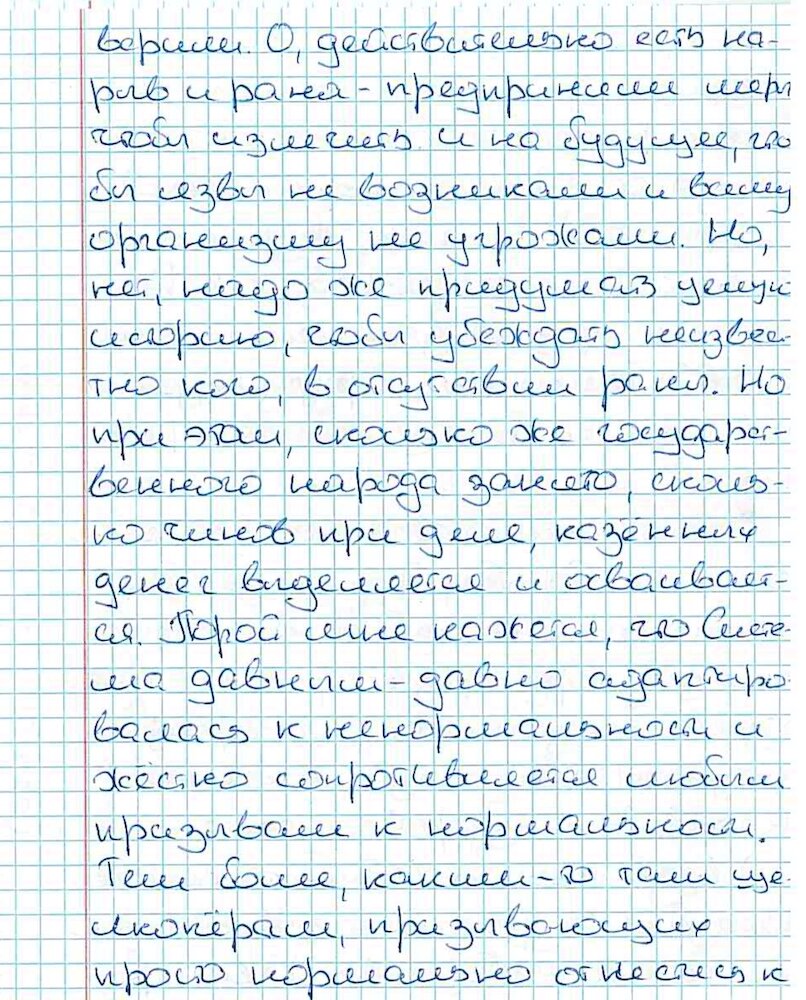 верили. О, действительно есть на-
рыв и рана - предпринели меры
чтобы излечить и на будущее, что
бы язвы не возникали и всему
организму не угрожали. Но,
нет, надо же придумать целую
историю, чтобы убеждать неизвес-
тно кого, в отсутствии раны. Но
при этом, сколько же государст-
венного народа занято, сколь-
ко чинов при деле, казённых
денег выделяется и осваивает-
ся. Порой мне кажется, что Систе-
ма давным-давно адаптиро
валась к ненормальности и
жёстко сопротивляется любым
призывам к нормальности.
Тем более, каким-то там ще-
лкопёрам, призывающих
просто нормально отнестись к